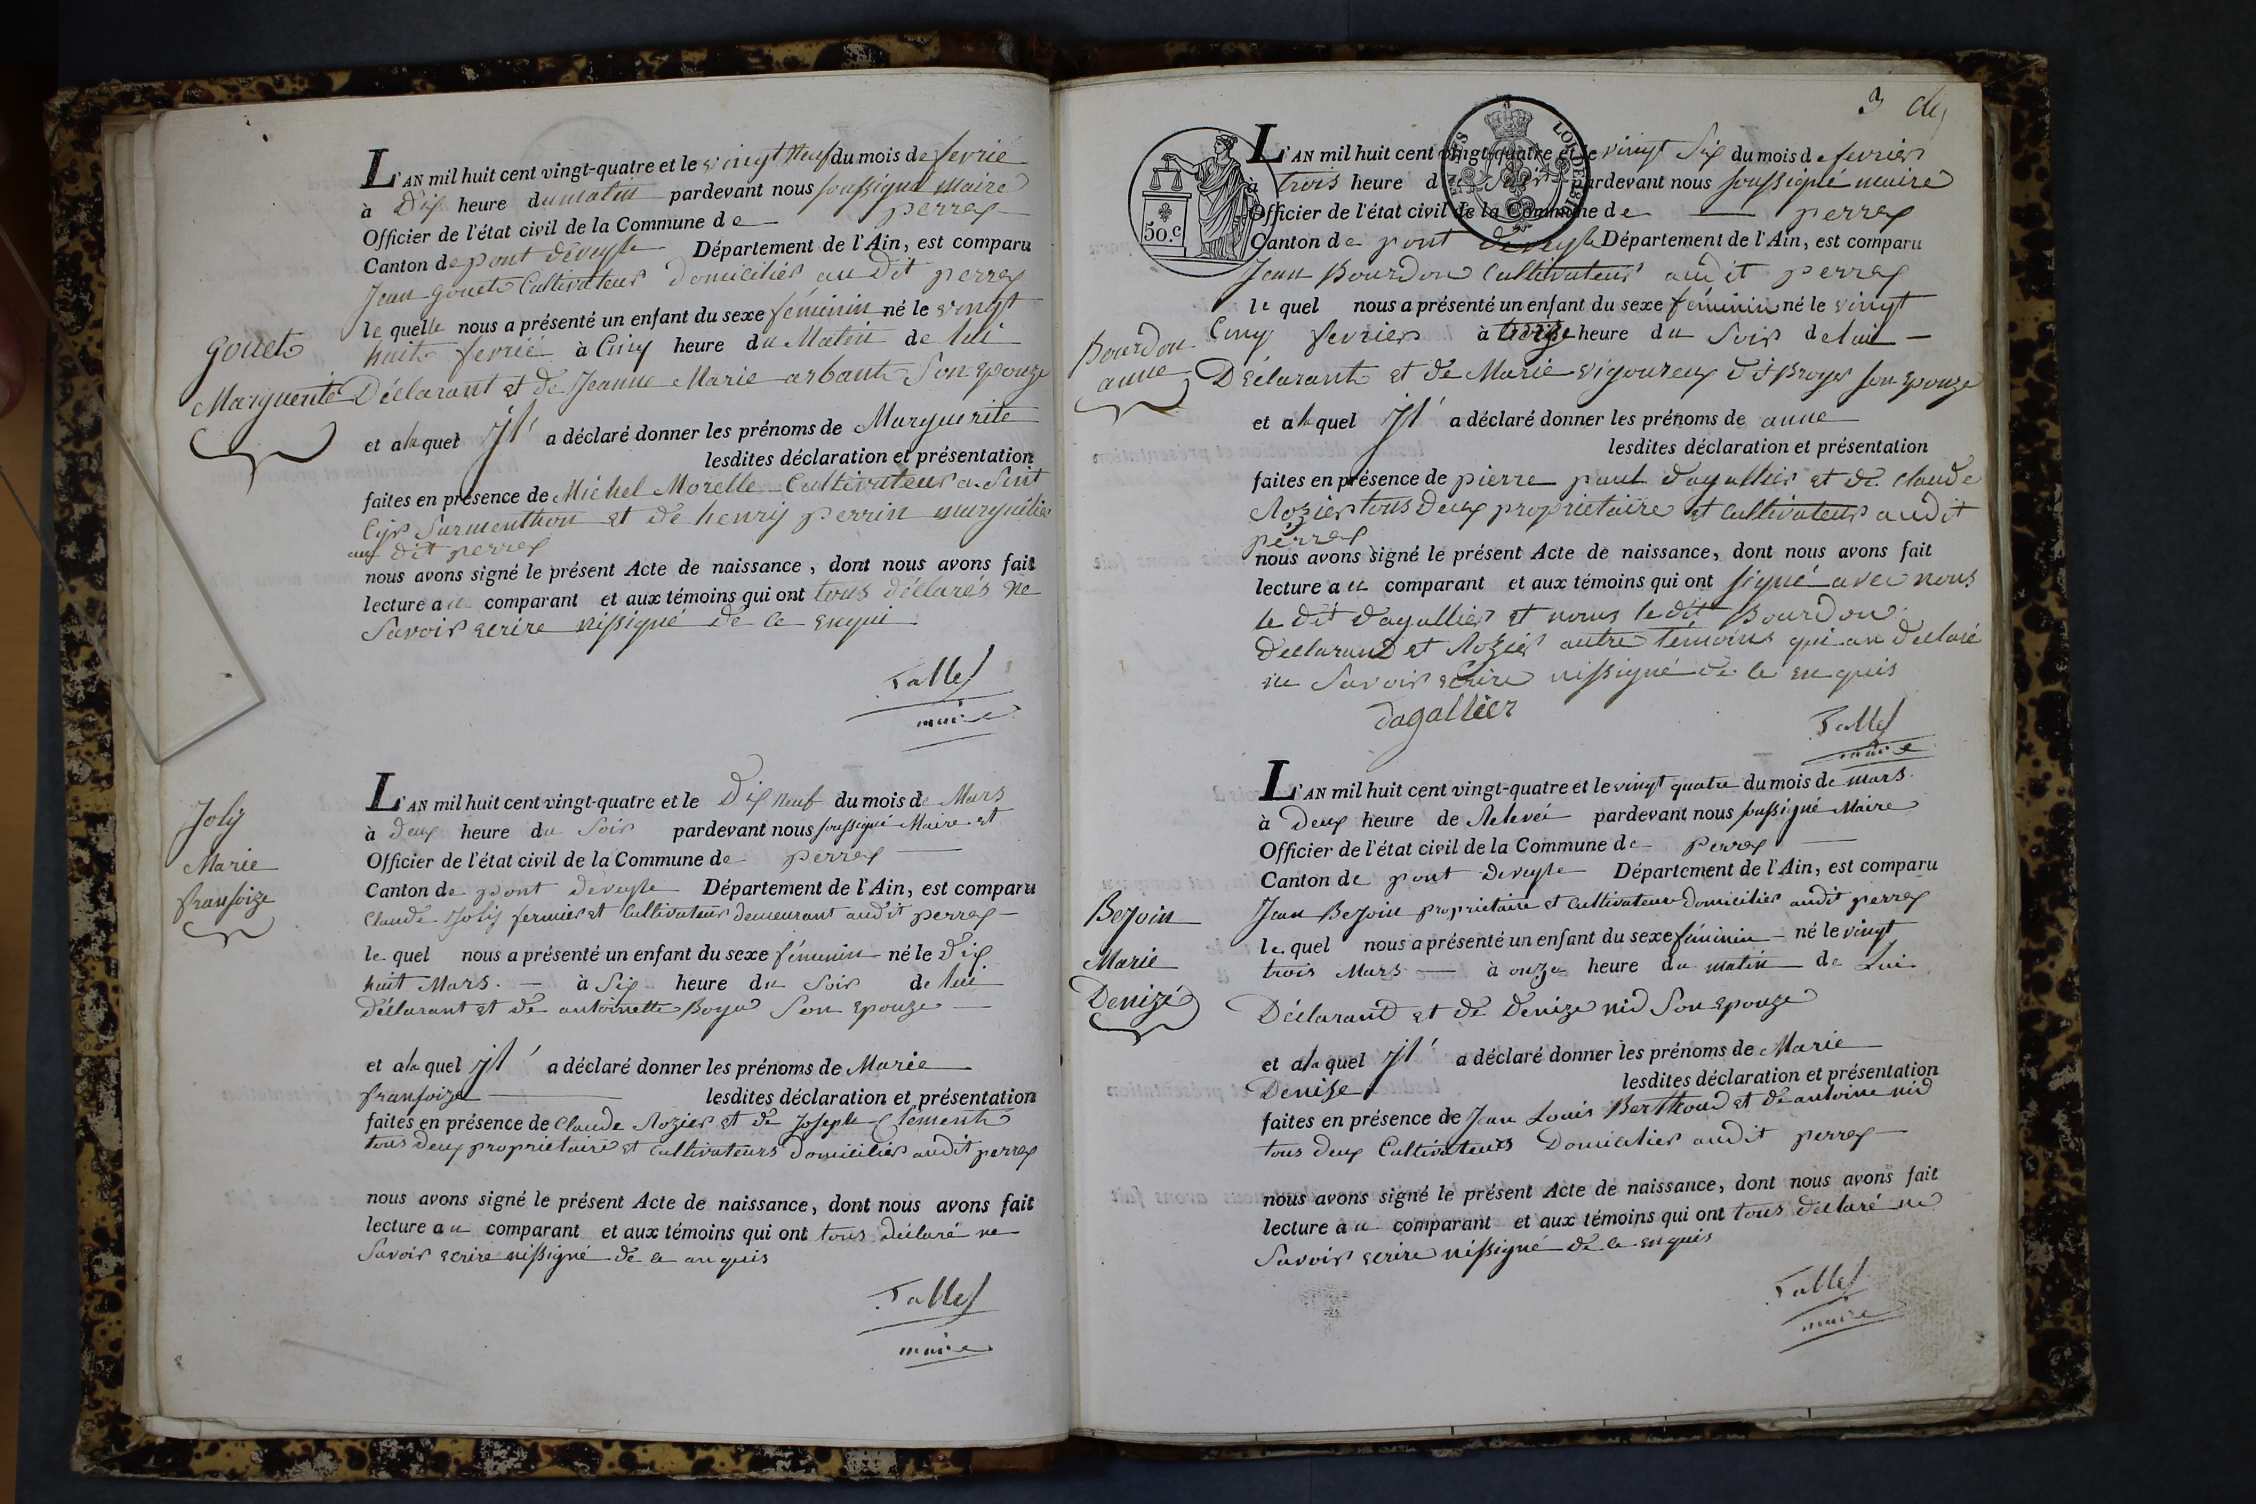 Gouet
Marguerite
L'AN mil huit cent vingt-quatre et le vingt neuf du mois de fevrié
à Dix heure du matin pardevant nous soussigné maire
Officier de l'état civil de la Commune de perrex
Canton de pont deveyle Département de l'Ain, est comparu
Jean gouet Cultivateur domicilier au dit perrex
le quelle nous a présenté un enfant du sexe féminin né le vingt
huit fevrié à Cinq heure du Matin de lui
Déclarant et de Jeanne Marie arbant Son Epouze
et a la quel Jl a déclaré donner les prénoms de Marguerite
lesdites déclaration et présentation
faites en présence de Michel Morelle Cultivateur a Sint
Cyr Surmenthon et de henry perrin marguilier
au dit perrex
nous avons signé le présent Acte de naissance, dont nous avons fait
lecture au comparant et aux témoins qui ont tous déclarés ne
Savoir ecrire nissigné de ce enqui
Tallel
maire
Joly
Marie
fransoize
L'AN mil huit cent vingt-quatre et le Dix neuf du mois de Mars
à Deux heure du Soir pardevant nous soussigné Maire et
Officier de l'état civil de la Commune de perrex
Canton de pont deveyle Département de l'Ain, est comparu
Claude Joly fermier et Cultivateur demeurant audit perrex
le quel nous a présenté un enfant du sexe féminin né le Dix
huit Mars. à Six heure du Soir de lui
Déclarant et de antoinette Boyer Son Epouze
et a la quel Jl a déclaré donner les prénoms de Marie
fransoize lesdites déclaration et présentation
faites en présence de Claude Rozier et de Joseph Clement
tous deux proprietaire et Cultivateurs domicilier audit perrex
nous avons signé le présent Acte de naissance, dont nous avons fait
lecture au comparant et aux témoins qui ont tous déclaré ne
Savoir ecrire nissigné de ce anquis
Tallel
maire
3
50.c
Bourdon
anne
L'AN mil huit cent vingt-quatre et le vingt Six du mois de fevrier
à trois heure du Soir pardevant nous soussigné maire
Officier de l'état civil de la Commune de perrex
Canton de pont deveyle Département de l'Ain, est comparu
Jean Bourdon Cultivateur audit perrex
le quel nous a présenté un enfant du sexe féminin né le vingt
Cinq fevrier à heure du Soir de lui
Déclarant et de Marie vigoureux dit Broyer son Epouze
et a la quel Jl a déclaré donner les prénoms de anne
lesdites déclaration et présentation
faites en présence de pierre paul dagallier et de claude
Rozier tous deux proprietaire et Cultivateur audit
perrex
nous avons signé le présent Acte de naissance, dont nous avons fait
lecture au comparant et aux témoins qui ont signé avec nous
le dit dagallier et nonus le dit Bourdon
déclarand et Rozier autre témoins qui an declaré
ne Savoir ecrire nissigné de ce enquis
dagallier
Tallel
maire
Bejoin
Marie
Denizé
L'AN mil huit cent vingt-quatre et le vingt quatre du mois de mars.
à Deux heure de Relevéé pardevant nous soussigné Maire
Officier de l'état civil de la Commune de Perrex
Canton de pont deveyle Département de l'Ain, est comparu
Jean Bejoin proprietaire et Cultivateur domicilier audit perrex
le quel nous a présenté un enfant du sexe féminin né le vingt
trois Mars à onze heure du matin de Lui
Déclarand et de Denize nid Son Epouze
et a la quel Jl a déclaré donner les prénoms de Marie
Denise lesdites déclaration et présentation
faites en présence de Jean Louis Berthoud et de antoine nid
tous deux Cultivateurs Domicilier audit perrex
nous avons signé le présent Acte de naissance, dont nous avons fait
lecture au comparant et aux témoins qui ont tous declaré ne
Savoir ecrire nissigné de ce enquis
Tallel
maire